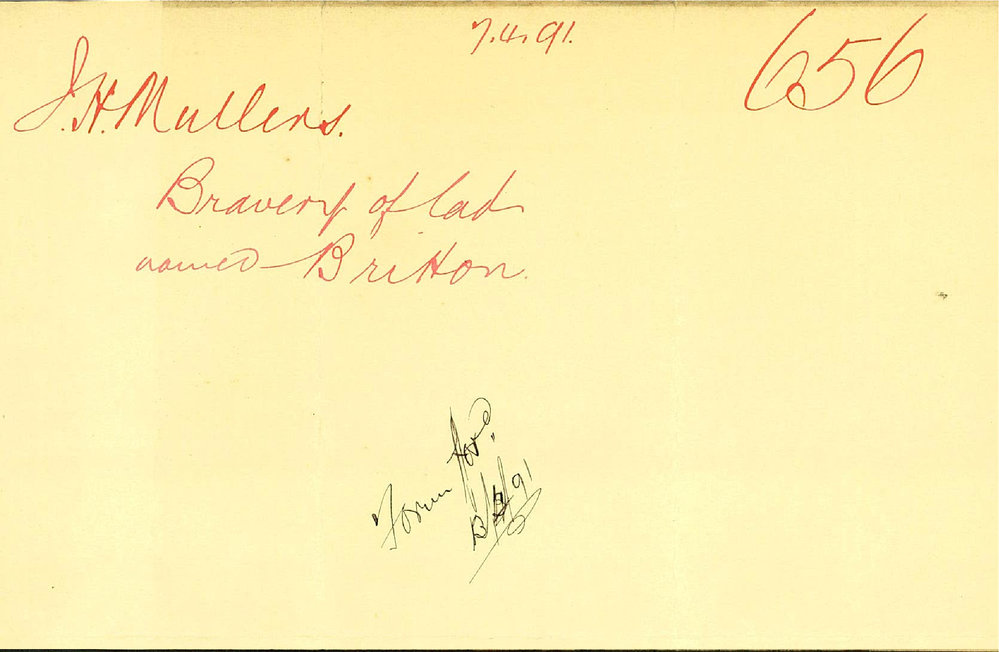 7.4.91.
656
J.H. Mullens.
Bravery of lad
named Britton.
Form
91